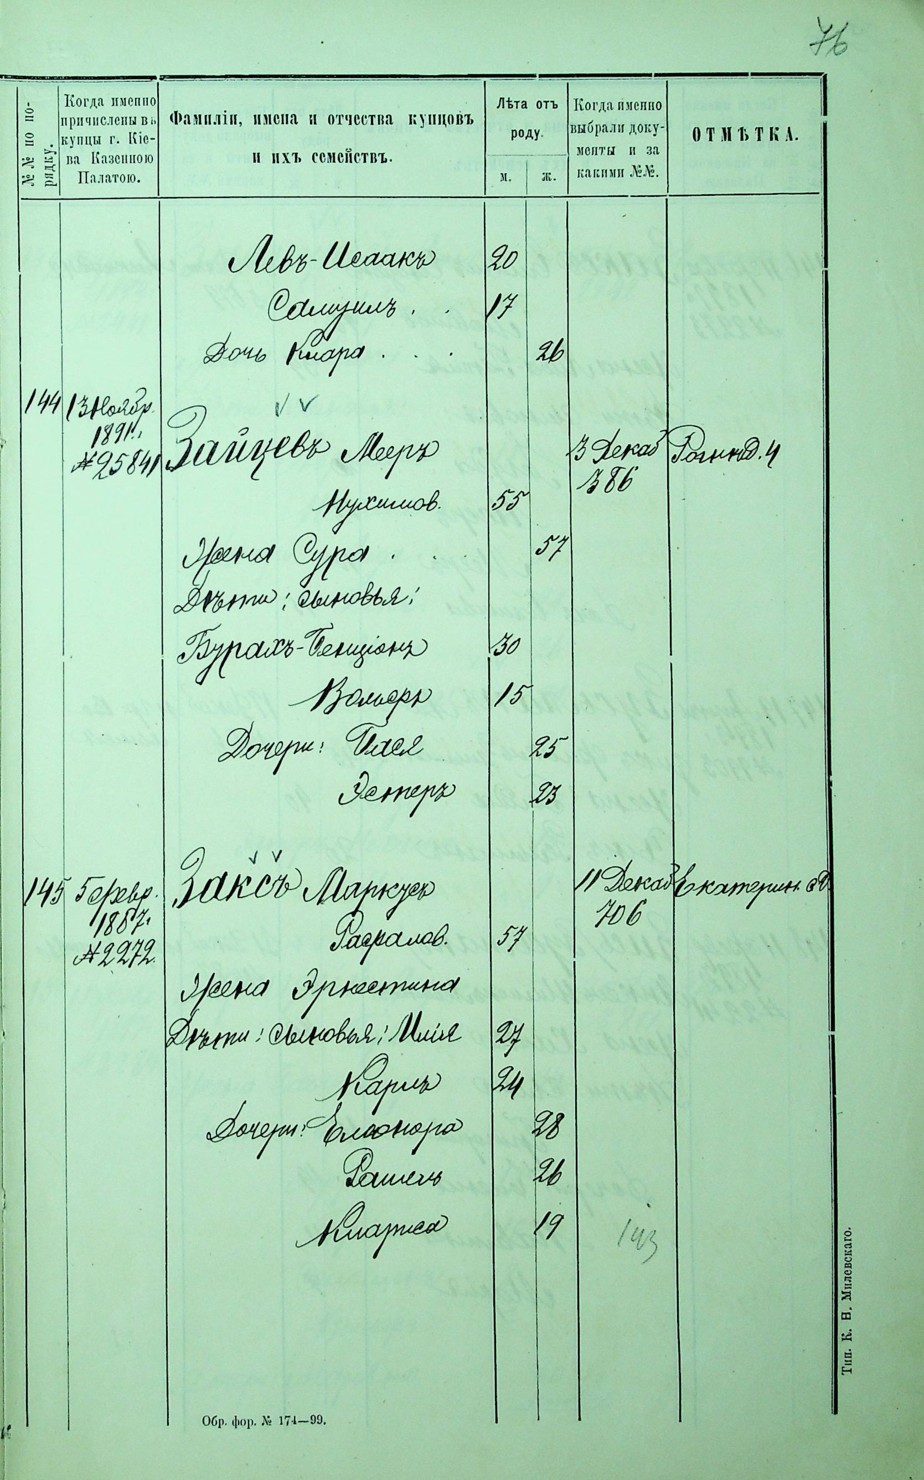 76
№№ по по-
рядку.
Когда именно
причислены въ
купцы г. Кіе-
ва Казенною
Палатою.
Фамиліи, имена и отчества купцовъ
и ихъ семействъ.
Лѣта отъ
роду.
м.
ж.
Когда именно
выбрали доку-
менты и за
какими №№.
ОТМѢТКА.
Левъ-Исаакъ 20
Самуилъ . . 17
Дочь Клара . . . 26
144 13 Ноябр.
1891 г.
№ 25841
Зайцевъ Мееръ
3 Декаб
386
Нухимов. 55
Жена Сура . . . 57
Дѣти: сыновья:
Бурахъ-Бенціонъ 30
Вольфъ 15
Дочери: Бася 25
Эстеръ 23
145 5 февр.
1887 г.
№ 2272
Заксъ Маркусъ
11 Декаб
706
Екатерин.
Рафалов. 57
Жена Эрнестина
Дѣти: сыновья: Илія 27
Карлъ 24
Дочери: Елеонора 28
Рашель 26
Клариса 19
143
Обр. фор. № 174—99.
Тип. К. Н. Милевскаго.